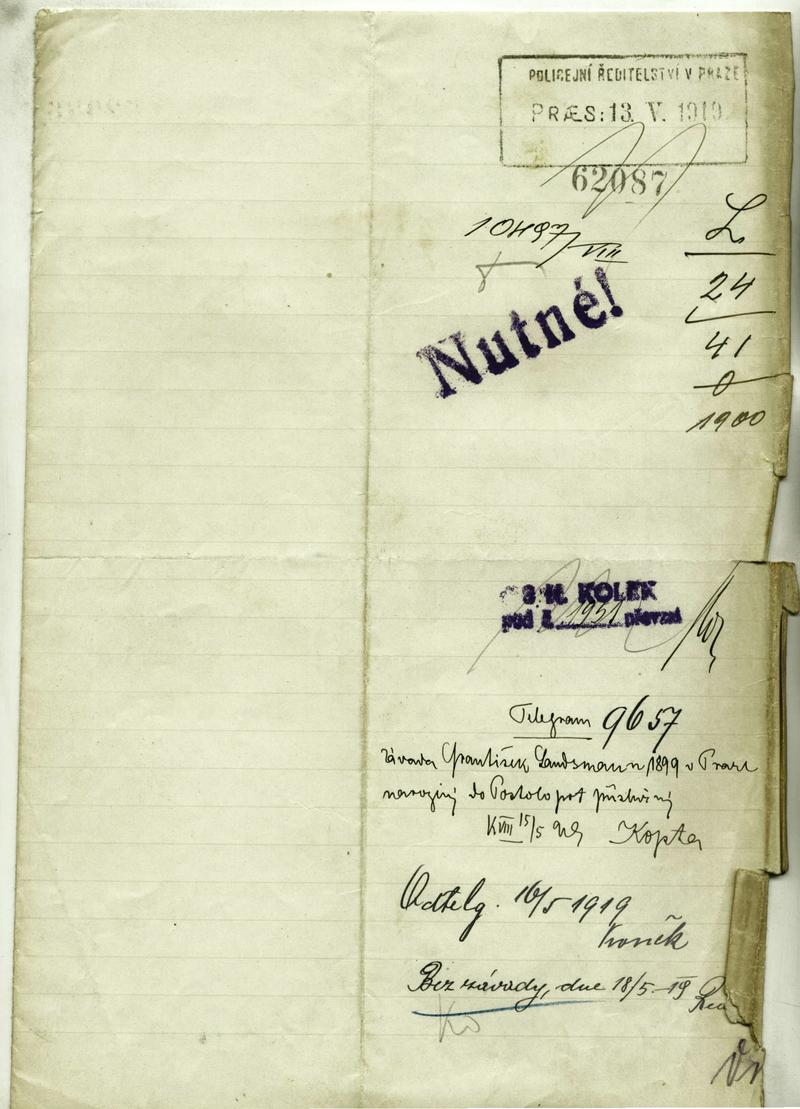 POLICEJNÍ ŘEDITELSTVÍ V PRAZE
PRÆS: 13. V. 1919
62087
10497/VIII
L
24
41
0
1900
Nutné!
KOLEK
pod č. 1931 převzal
Telegram 9657
závada František Landsmann 1899 v Praze
narozený do Postoloprt příslušný
KVIII 15/5 Kopta
Odtelg. 16/5 1919
Bez závady, dne 18/5 19